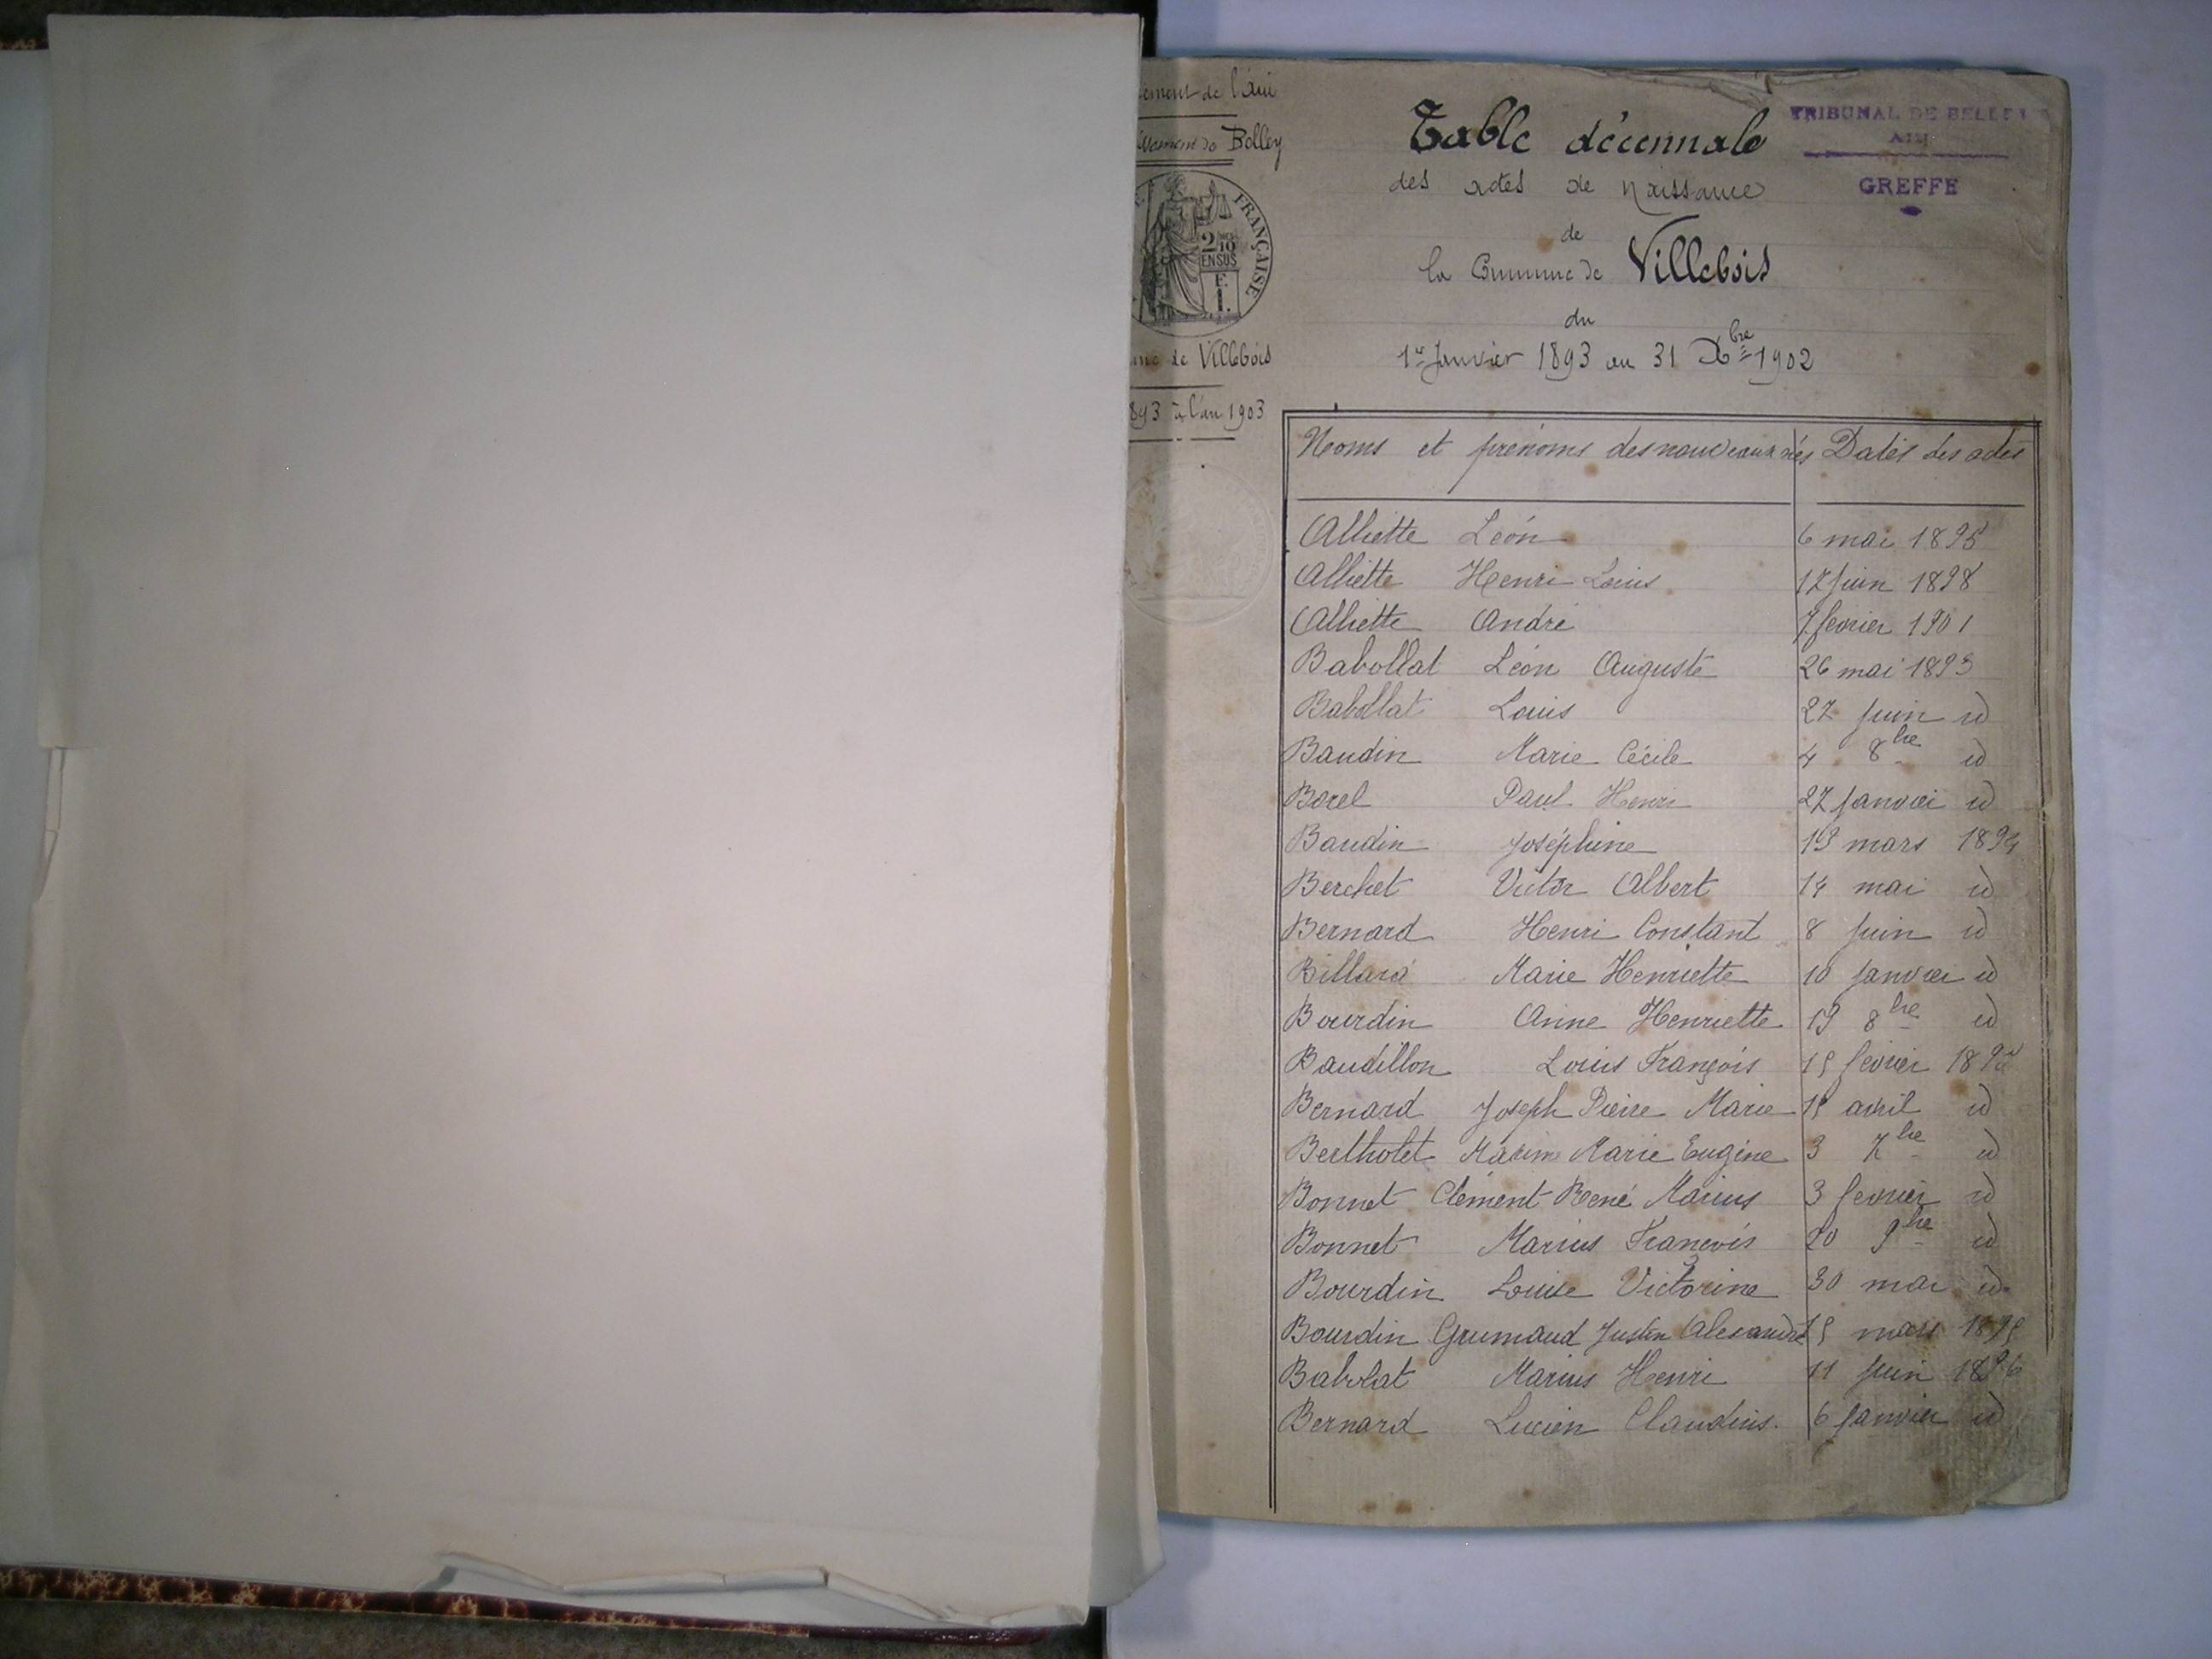 ement de l'Ain
Belley
FRANÇAISE
2 10
EN SUS
F.
1.
de Villebois
893 à l'an 1903
Table décennale
des actes de Naissance
de
la Commune de Villebois
du
1er Janvier 1893 au 31 Xbre 1902
TRIBUNAL DE BELLEY
AIN
GREFFE
Noms et prénoms des nouveaux nés Dates des actes
Alliette Léon 6 mai 1895
Alliette Henri Louis 17 juin 1898
Alliette André 7 février 1901
Babollat Léon Auguste 26 mai 1893
Babollat Louis 27 juin id
Baudin Marie Cécile 4 8bre id
Borel Paul Henri 27 janvier id
Baudin Joséphine 19 mars 1894
Berchet Victor Albert 14 mai id
Bernard Henri Constant 8 juin id
Billard Marie Henriette 10 janvier id
Bourdin Anne Henriette 19 8bre id
Baudillon Louis François 15 février 1895
Bernard Joseph Pierre Marie 15 avril id
Bertholet Maxim Marie Eugène 3 7bre id
Bonnet Clément René Marius 3 février id
Bonnet Marius François 20 9bre id
Bourdin Louise Victorine 30 mai id
Bourdin Grumaud Justin Alexandre 15 mars 1895
Babolat Marius Henri 11 juin 1896
Bernard Lucien Claudius. 6 janvier id